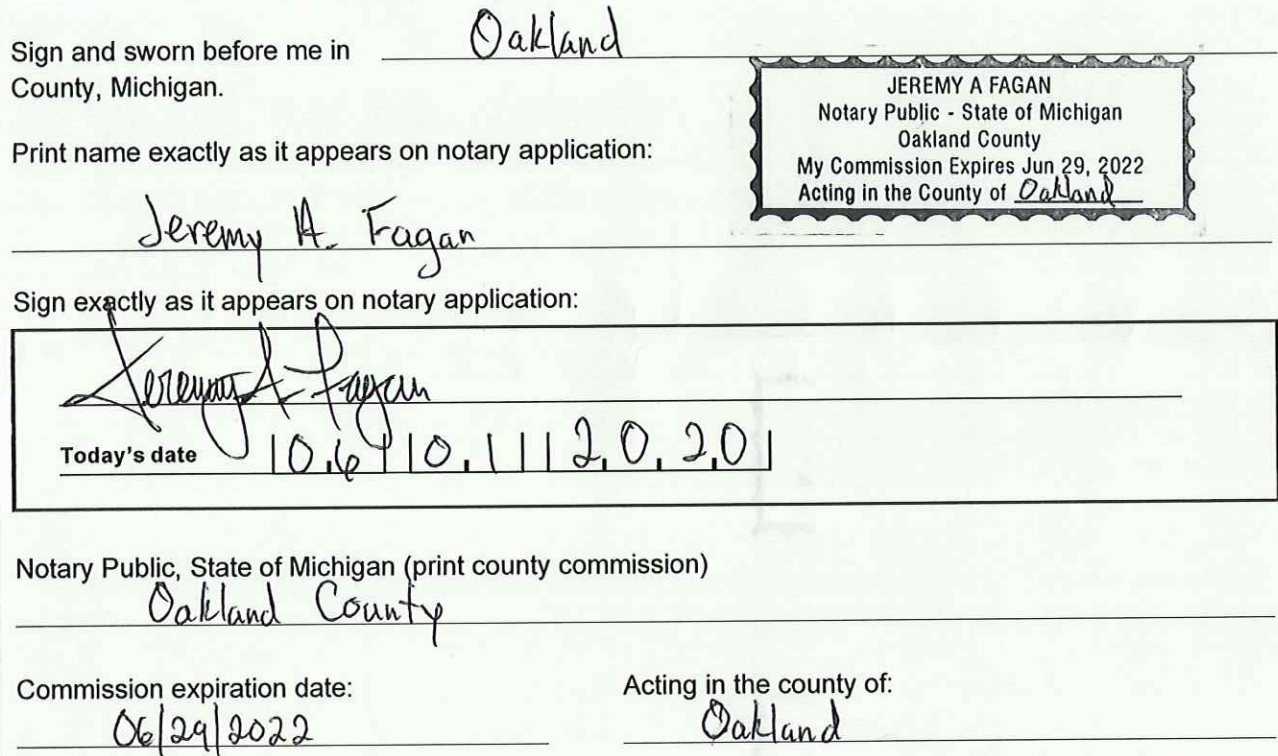 Sign and sworn before me in Oakland
County, Michigan.
JEREMY A FAGAN
Notary Public - State of Michigan
Oakland County
My Commission Expires Jun 29, 2022
Acting in the County of Oakland
Print name exactly as it appears on notary application:
Jeremy A. Fagan
Sign exactly as it appears on notary application:
Jeremy A Fagan
Today's date 06 01 2020
Notary Public, State of Michigan (print county commission)
Oakland County
Commission expiration date: Acting in the county of:
06/29/2022 Oakland